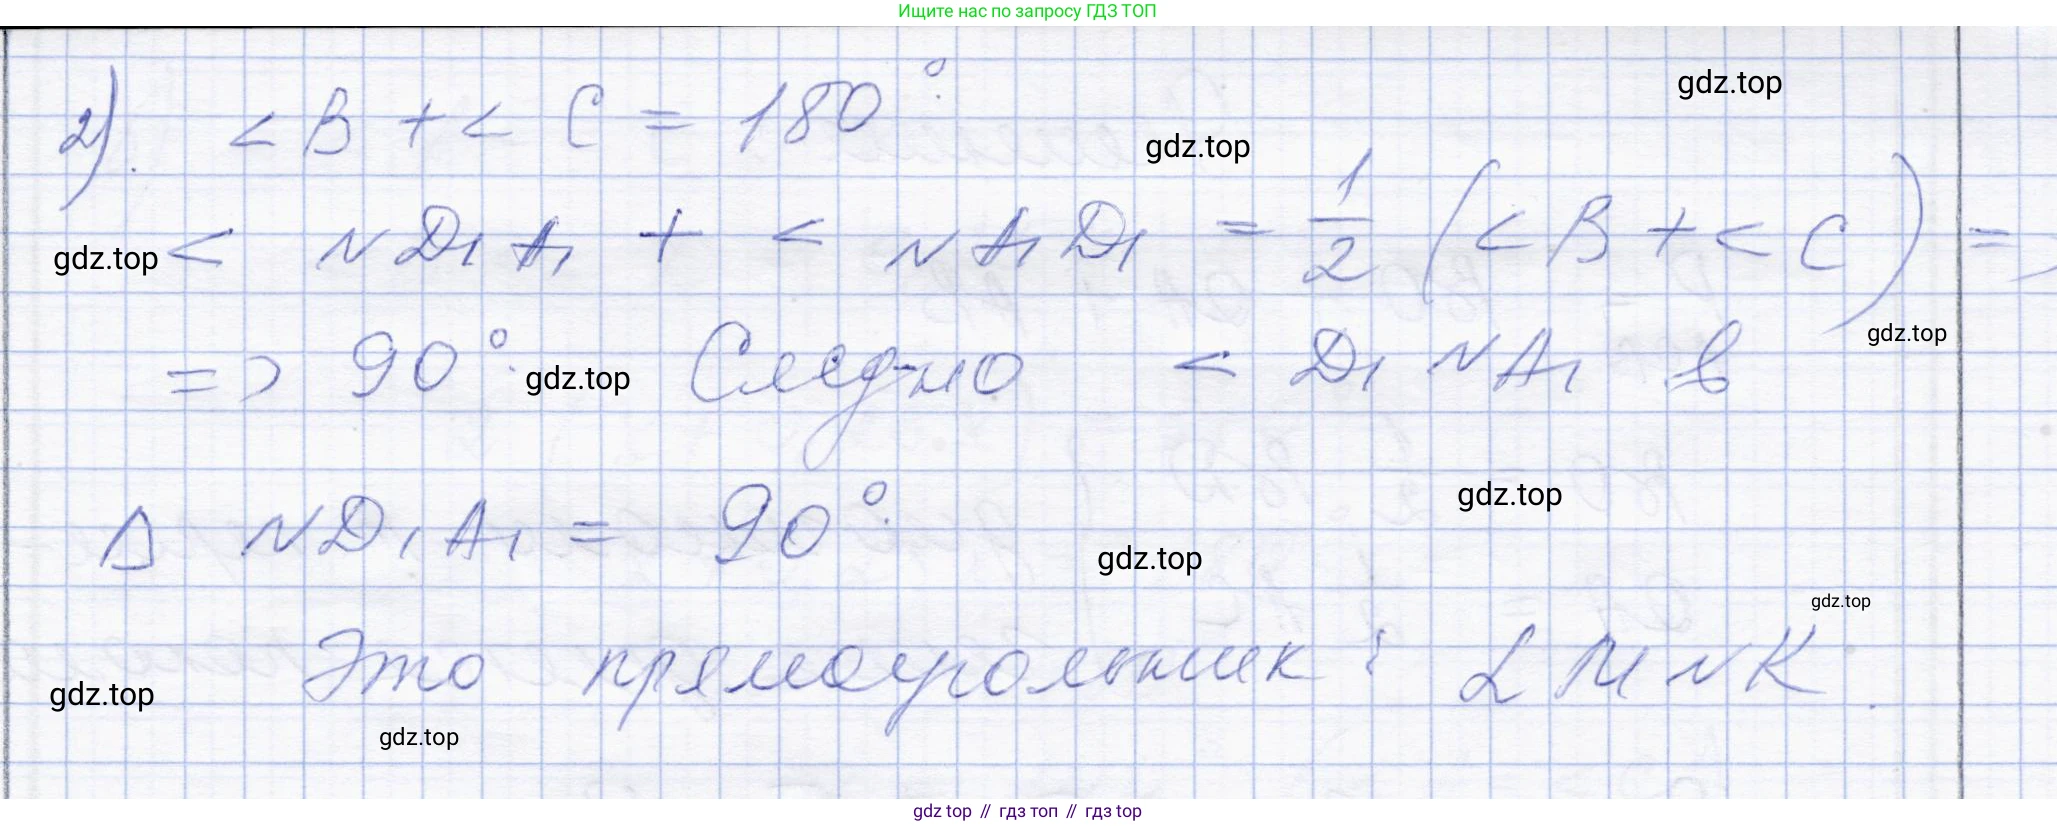 Ищите нас по запросу ГДЗ ТОП
gdz.top
2). < B + < C = 180°.
gdz.top
< ND₁A₁ + < NA₁D₁ = 1/2 (< B + < C) =>
gdz.top
gdz.top
=> 90°. След-но < D₁NA₁ в
gdz.top
gdz.top
Δ ND₁A₁ = 90°.
gdz.top
gdz.top
Это прямоугольник: LMNK.
gdz.top
gdz.top
gdz top // гдз топ // гдз top